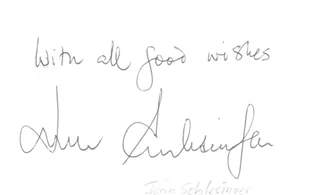 With all good wishes
John Schlesinger
John Schlesinger